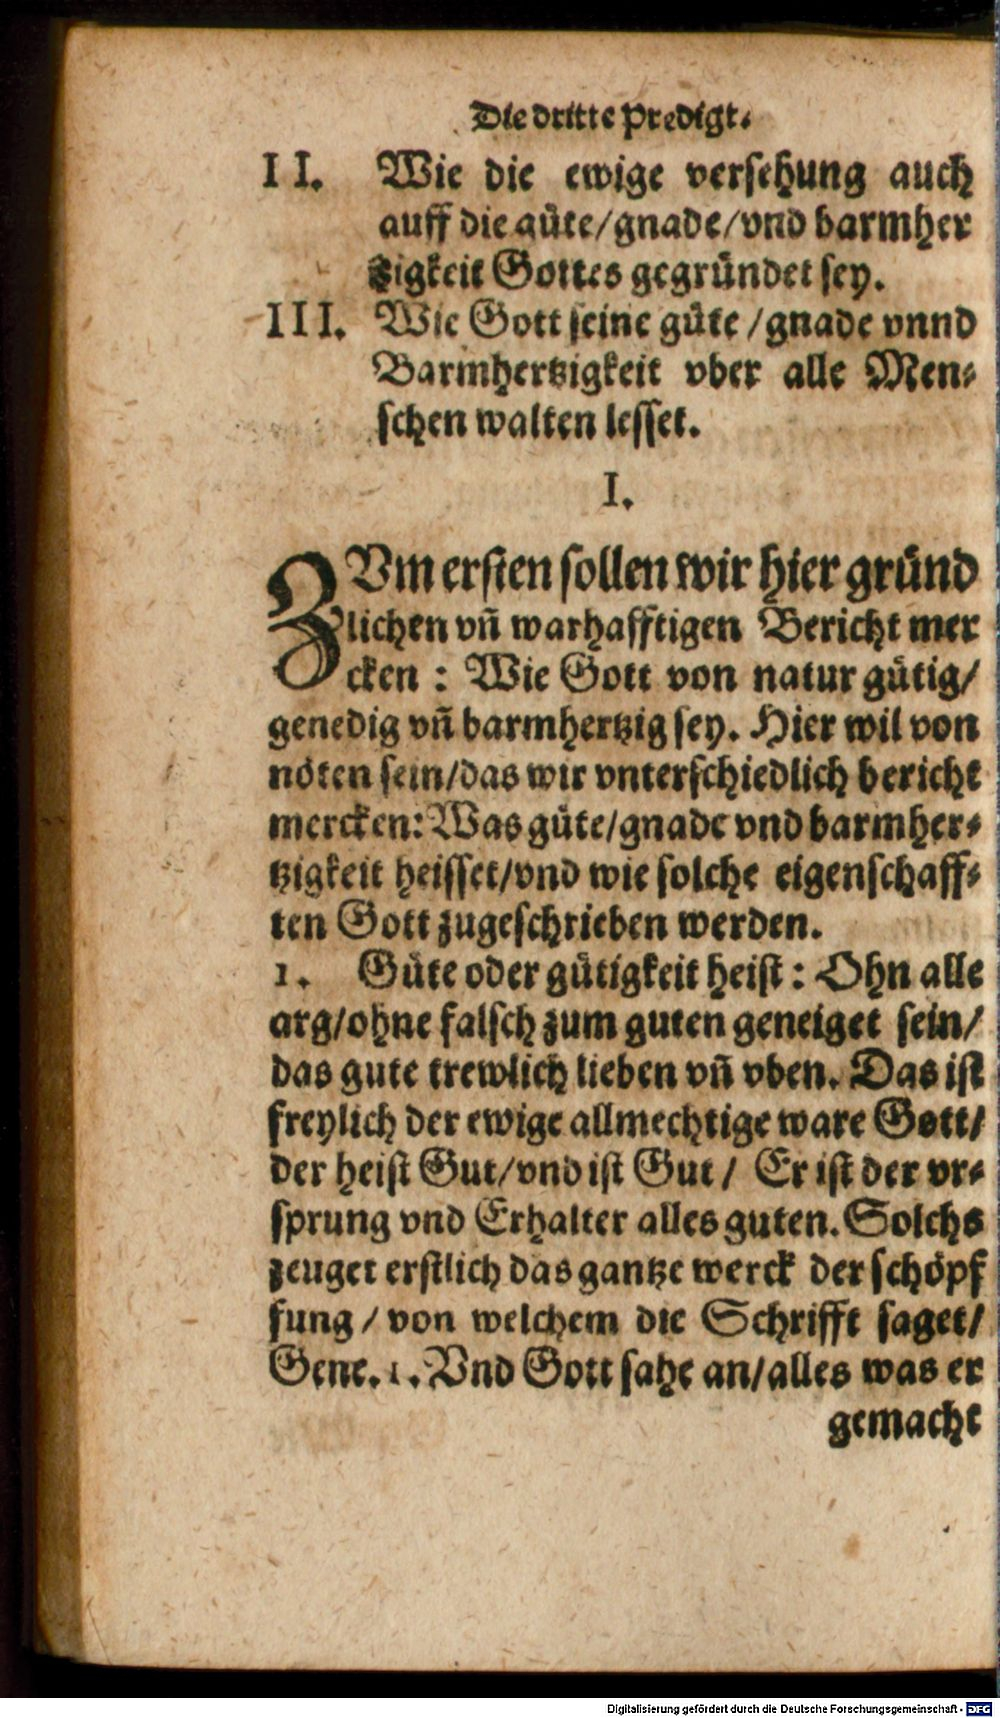 Die dritte Predigt.
II. Wie die ewige versehung auch
auff die güte/gnade/vnd barmher
zigkeit Gottes gegründet sey.
III. Wie Gott seine güte/gnade vnnd
Barmhertzigkeit vber alle Men-
schen walten lesset.
I.
ZVm ersten sollen wir hier gründ
lichen vñ warhafftigen Bericht mer
cken: Wie Gott von natur gütig/
genedig vñ barmhertzig sey. Hier wil von
nöten sein/das wir vnterschiedlich bericht
mercken: Was güte/gnade vnd barmher-
tzigkeit heisset/vnd wie solche eigenschaff-
ten Gott zugeschrieben werden.
1. Güte oder gütigkeit heist: Ohn alle
arg/ohne falsch zum guten geneiget sein/
das gute trewlich lieben vñ vben. Das ist
freylich der ewige allmechtige ware Gott/
der heist Gut/vnd ist Gut/ Er ist der vr-
sprung vnd Erhalter alles guten. Solchs
zeuget erstlich das gantze werck der schöpf
fung/von welchem die Schrifft saget/
Gene. 1. Vnd Gott sahe an/alles was er
gemacht
Digitalisierung gefördert durch die Deutsche Forschungsgemeinschaft - DFG